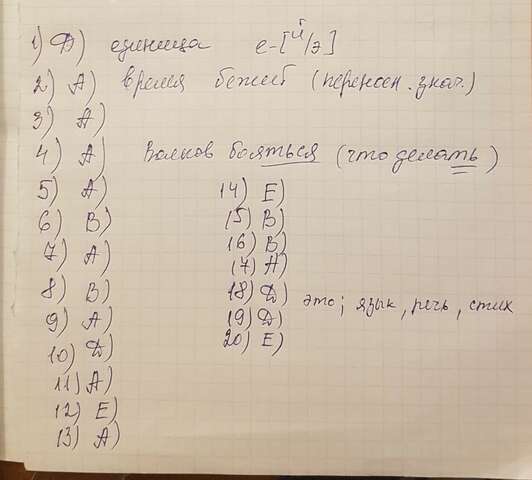 1) Д) единица е-[й/э]
2) А) время бежит (перенен. знач.)
3) А)
4) А) Волков бояться (что делать)
5) А)
6) В)
7) А)
8) В)
9) А)
10) Д)
11) А)
12) Е)
13) А)
14) Е)
15) В)
16) В)
17) А)
18) Д) это; язык, речь, стих
19) Д)
20) Е)